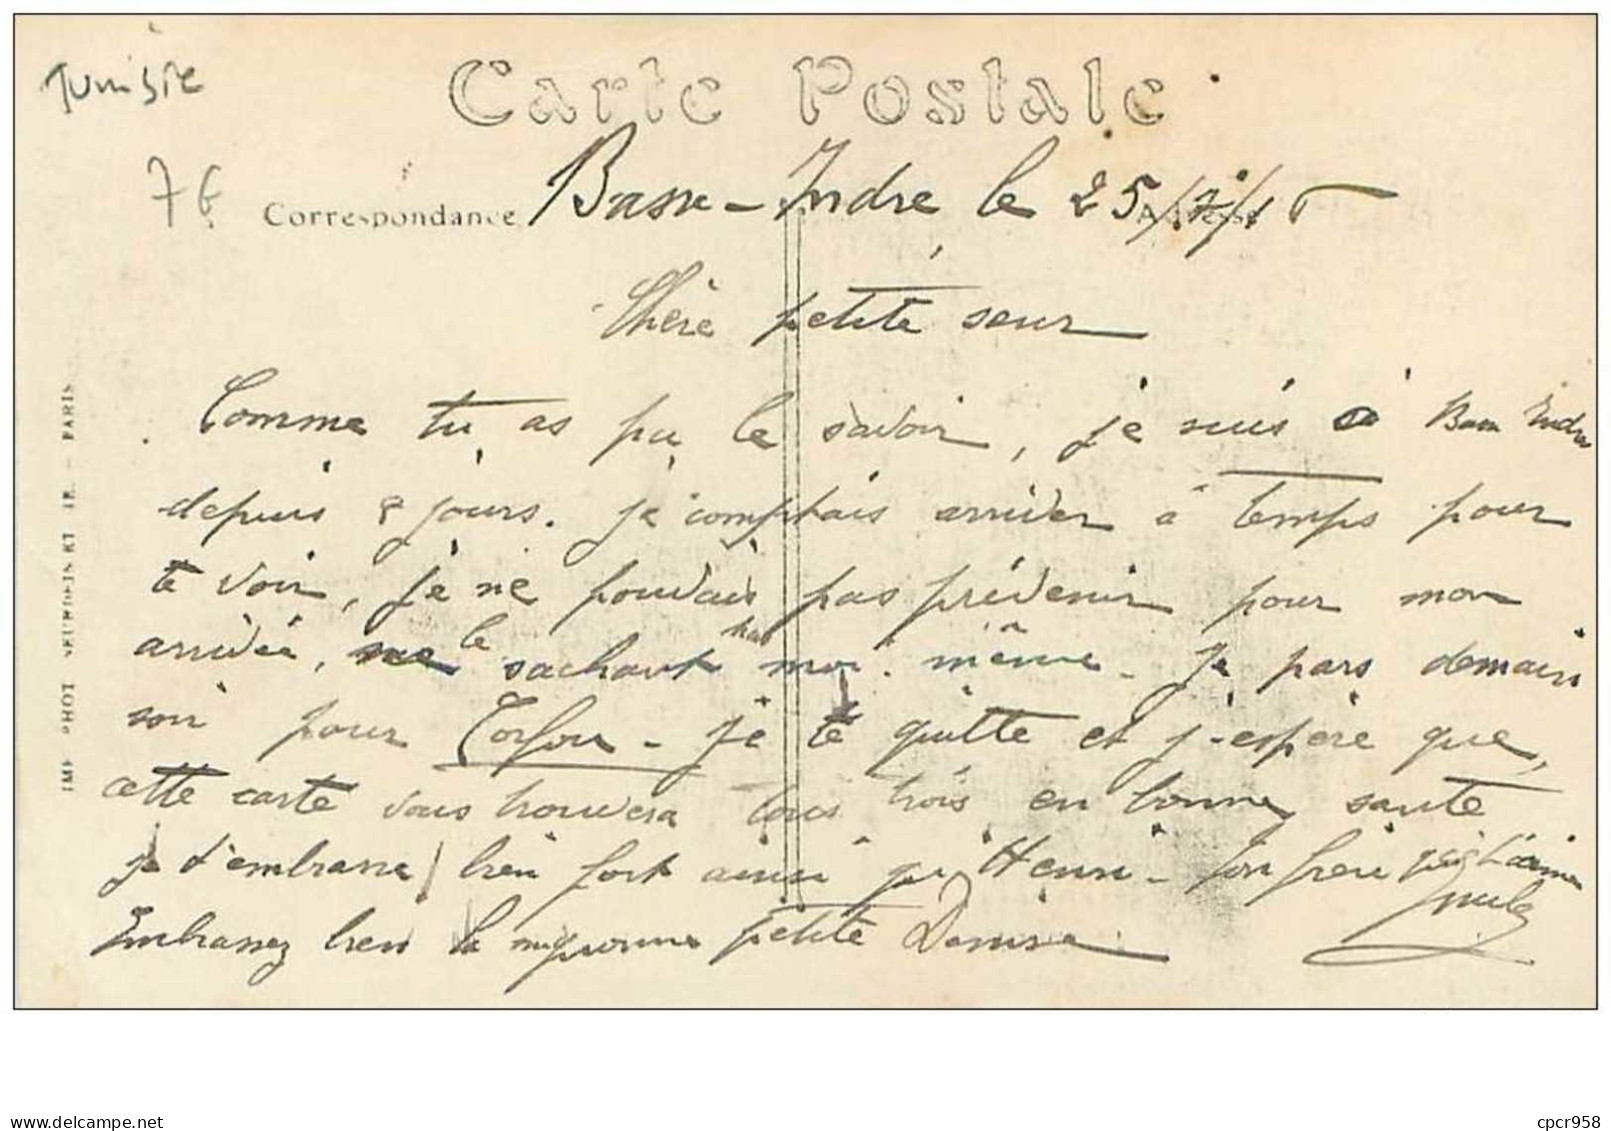 Tunisie
Carte Postale
7€
Correspondance
Basse-Indre le 25/7/15
Chère petite seur
Comme tu as pu le savoir, je suis à Basse Indre
depuis 8 jours. je comptais arriver à temps pour
te voir, je ne pouvais pas prévenir pour mon
arrivée, ne le sachant pas moi-même. Je pars demain
soir pour Torfou - je te quitte et j'espère que,
cette carte vous trouvera tous trois en bonne santé
je t'embrasse bien fort ainsi qu'Henri - Ton frère qui t'aime
Jules
Embrassez bien la mignonne petite Denise
IMP. PHOT. NEURDEIN ET Cie - PARIS
www.delcampe.net
cpcr958